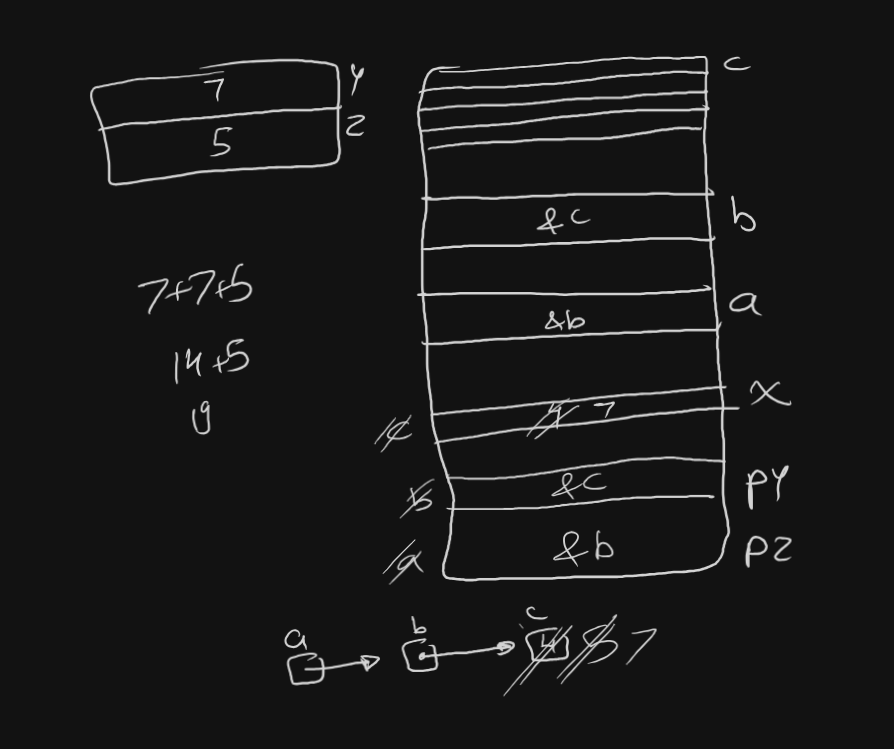 7 Y
5 Z
7+7+5
14+5
19
c
&c b
&b a
4 7 x
c
&c PY
b
&b PZ
a
a b c
4 5 7